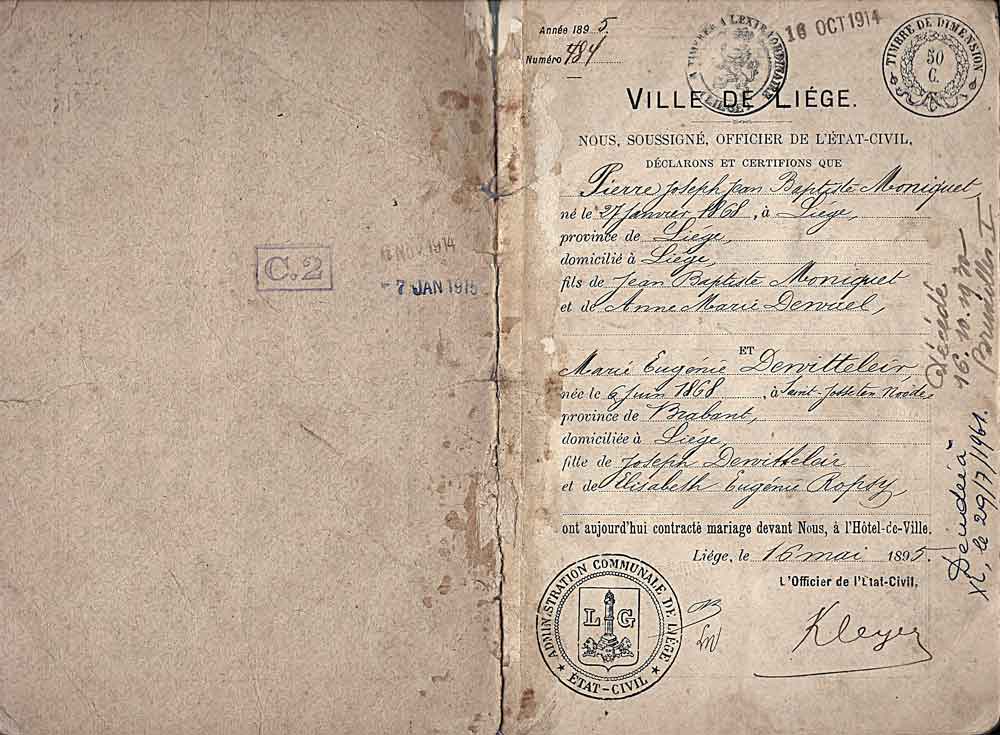 C.2
JAN 1914
- 7 JAN 1915
Année 1895
Numéro 484
16 OCT 1914
TIMBRE DE DIMENSION
50
C.
VILLE DE LIÉGE.
NOUS, SOUSSIGNÉ, OFFICIER DE L'ÉTAT-CIVIL,
DÉCLARONS ET CERTIFIONS QUE
Pierre Joseph Jean Baptiste Moniquet
né le 27 Janvier 1868, à Liége,
province de Liége,
domicilié à Liége,
fils de Jean Baptiste Moniquet
et de Anne Marie
ET
Marie Eugénie Dewitteleir
née le 6 Juin 1868, à Saint-Josse ten Noode
province de Brabant,
domiciliée à Liége,
fille de Joseph Dewitteleir
et de Elisabeth Eugénie Ropsy,
ont aujourd'hui contracté mariage devant Nous, à l'Hôtel-de-Ville.
Liége, le 16 mai 1895.
L'Officier de l'Etat-Civil,
Kleyer
ADMINISTRATION COMMUNALE DE LIÉGE
L G
ÉTAT-CIVIL
Décédé
Bruxelles I
XL, le 29/7/1961.